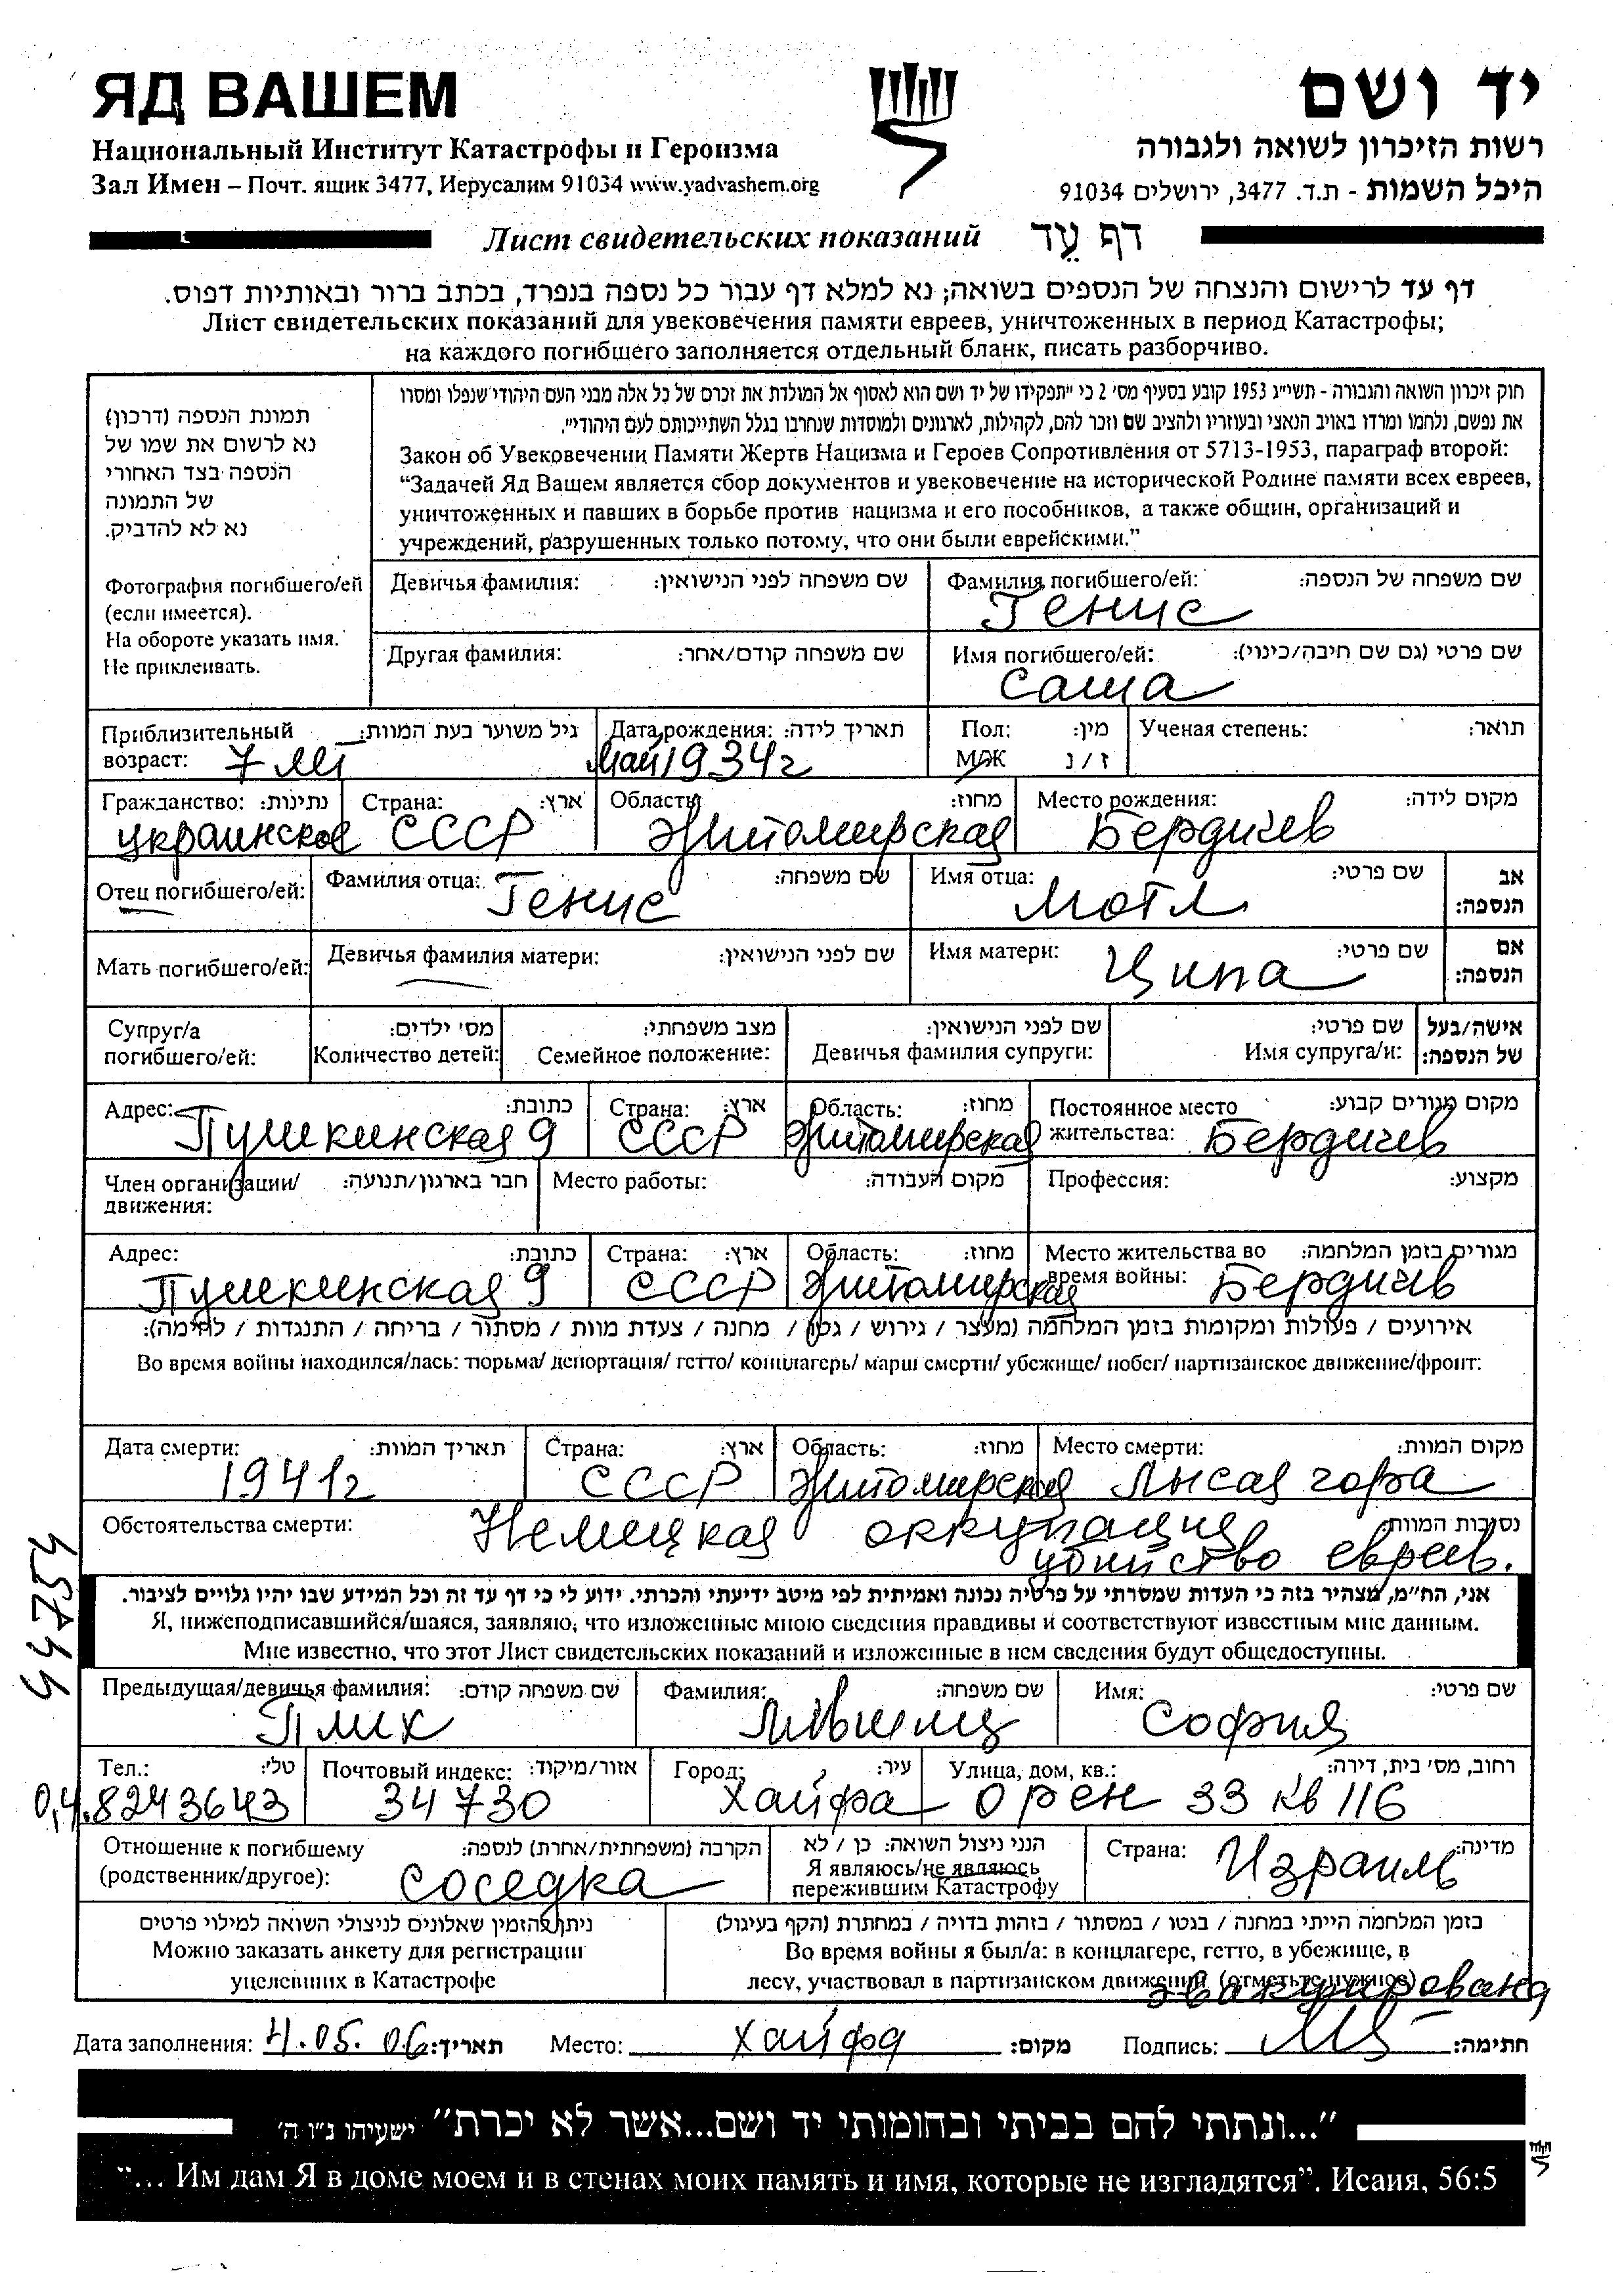 ЯД ВАШЕМ
יד ושם
Национальный Институт Катастрофы и Героизма
רשות הזיכרון לשואה ולגבורה
Зал Имен – Почт. ящик 3477, Иерусалим 91034 www.yadvashem.org
היכל השמות - ת.ד. 3477, ירושלים 91034
Лист свидетельских показаний דף עֵד
דף עד לרישום והנצחה של הנספים בשואה; נא למלא דף עבור כל נספה בנפרד, בכתב ברור ובאותיות דפוס.
Лист свидетельских показаний для увековечения памяти евреев, уничтоженных в период Катастрофы;
на каждого погибшего заполняется отдельный бланк, писать разборчиво.
תמונת הנספה (דרכון)
נא לרשום את שמו של
הנספה בצד האחורי
של התמונה
נא לא להדביק.
Фотография погибшего/ей
(если имеется).
На обороте указать имя.
Не приклеивать.
חוק זיכרון השואה והגבורה - תשי״ג 1953 קובע בסעיף מס׳ 2 כי ״תפקידו של יד ושם הוא לאסוף אל המולדת את זכרם של כל אלה מבני העם היהודי שנפלו ומסרו
את נפשם, נלחמו ומרדו באויב הנאצי ובעוזריו ולהציב שם וזכר להם, לקהילות, לארגונים ולמוסדות שנחרבו בגלל השתייכותם לעם היהודי״.
Закон об Увековечении Памяти Жертв Нацизма и Героев Сопротивления от 5713-1953, параграф второй:
“Задачей Яд Вашем является сбор документов и увековечение на исторической Родине памяти всех евреев,
уничтоженных и павших в борьбе против нацизма и его пособников, а также общин, организаций и
учреждений, разрушенных только потому, что они были еврейскими.”
Девичья фамилия: שם משפחה לפני הנישואין:
Фамилия погибшего/ей: שם משפחה של הנספה:
Генис
Другая фамилия: שם משפחה קודם/אחר:
Имя погибшего/ей: שם פרטי (גם שם חיבה/כינוי):
Саша
Приблизительный возраст: גיל משוער בעת המוות:
7 лет
Дата рождения: תאריך לידה:
май 1934г
Пол: מין:
М/Ж ז / נ
Ученая степень: תואר:
Гражданство: נתינות:
украинское
Страна: ארץ:
СССР
Область: מחוז:
Житомирская
Место рождения: מקום לידה:
Бердичев
Отец погибшего/ей:
Фамилия отца: שם משפחה:
Генис
Имя отца: שם פרטי:
Мотл
אב הנספה:
Мать погибшего/ей:
Девичья фамилия матери: שם לפני הנישואין:
Имя матери: שם פרטי:
Ципа
אם הנספה:
Супруг/а погибшего/ей:
מס׳ ילדים: Количество детей:
מצב משפחתי: Семейное положение:
שם לפני הנישואין: Девичья фамилия супруги:
שם פרטי: Имя супруга/и:
אישה/בעל של הנספה:
Адрес: כתובת:
Пушкинская 9
Страна: ארץ:
СССР
Область: מחוז:
Житомирская
Постоянное место жительства: מקום מגורים קבוע:
Бердичев
Член организации/движения: חבר בארגון/תנועה:
Место работы: מקום העבודה:
Профессия: מקצוע:
Адрес: כתובת:
Пушкинская 9
Страна: ארץ:
СССР
Область: מחוז:
Житомирская
Место жительства во время войны: מגורים בזמן המלחמה:
Бердичев
אירועים / פעולות ומקומות בזמן המלחמה (מעצר / גירוש / גטו / מחנה / צעדת מוות / מסתור / בריחה / התנגדות / לחימה):
Во время войны находился/лась: тюрьма/ депортация/ гетто/ концлагерь/ марш смерти/ убежище/ побег/ партизанское движение/фронт:
Дата смерти: תאריך המוות:
1941г
Страна: ארץ:
СССР
Область: מחוז:
Житомирская
Место смерти: מקום המוות:
Лысая гора
Обстоятельства смерти: נסיבות המוות:
Немецкая оккупация
убийство евреев.
אני, הח״מ, מצהיר בזה כי העדות שמסרתי על פרטיה נכונה ואמיתית לפי מיטב ידיעתי והכרתי. ידוע לי כי דף עד זה וכל המידע שבו יהיו גלויים לציבור.
Я, нижеподписавшийся/шаяся, заявляю, что изложенные мною сведения правдивы и соответствуют известным мне данным.
Мне известно, что этот Лист свидетельских показаний и изложенные в нем сведения будут общедоступны.
Предыдущая/девичья фамилия: שם משפחה קודם:
Фамилия: שם משפחה:
Лившиц
Имя: שם פרטי:
София
Тел.: טל׳:
04.8243643
Почтовый индекс: אזור/מיקוד:
34730
Город: עיר:
Хайфа
Улица, дом, кв.: רחוב, מס׳ בית, דירה:
Орен 33 кв 116
Отношение к погибшему (родственник/другое): הקרבה (משפחתית/אחרת) לנספה:
Соседка
הנני ניצול השואה: כן / לא
Я являюсь/не являюсь
пережившим Катастрофу
Страна: מדינה:
Израиль
ניתן להזמין שאלונים לניצולי השואה למילוי פרטים
Можно заказать анкету для регистрации
уцелевших в Катастрофе
בזמן המלחמה הייתי במחנה / בגטו / במסתור / בזהות בדויה / במחתרת (הקף בעיגול)
Во время войны я был/а: в концлагере, гетто, в убежище, в
лесу, участвовал в партизанском движении (отметьте нужное)
эвакуирована
Дата заполнения: 4.05.06 תאריך: Место: Хайфа מקום: Подпись: חתימה:
״...ונתתי להם בביתי ובחומותי יד ושם...אשר לא יכרת״ ישעיהו נ״ו ה׳
“... Им дам Я в доме моем и в стенах моих память и имя, которые не изгладятся”. Исаия, 56:5